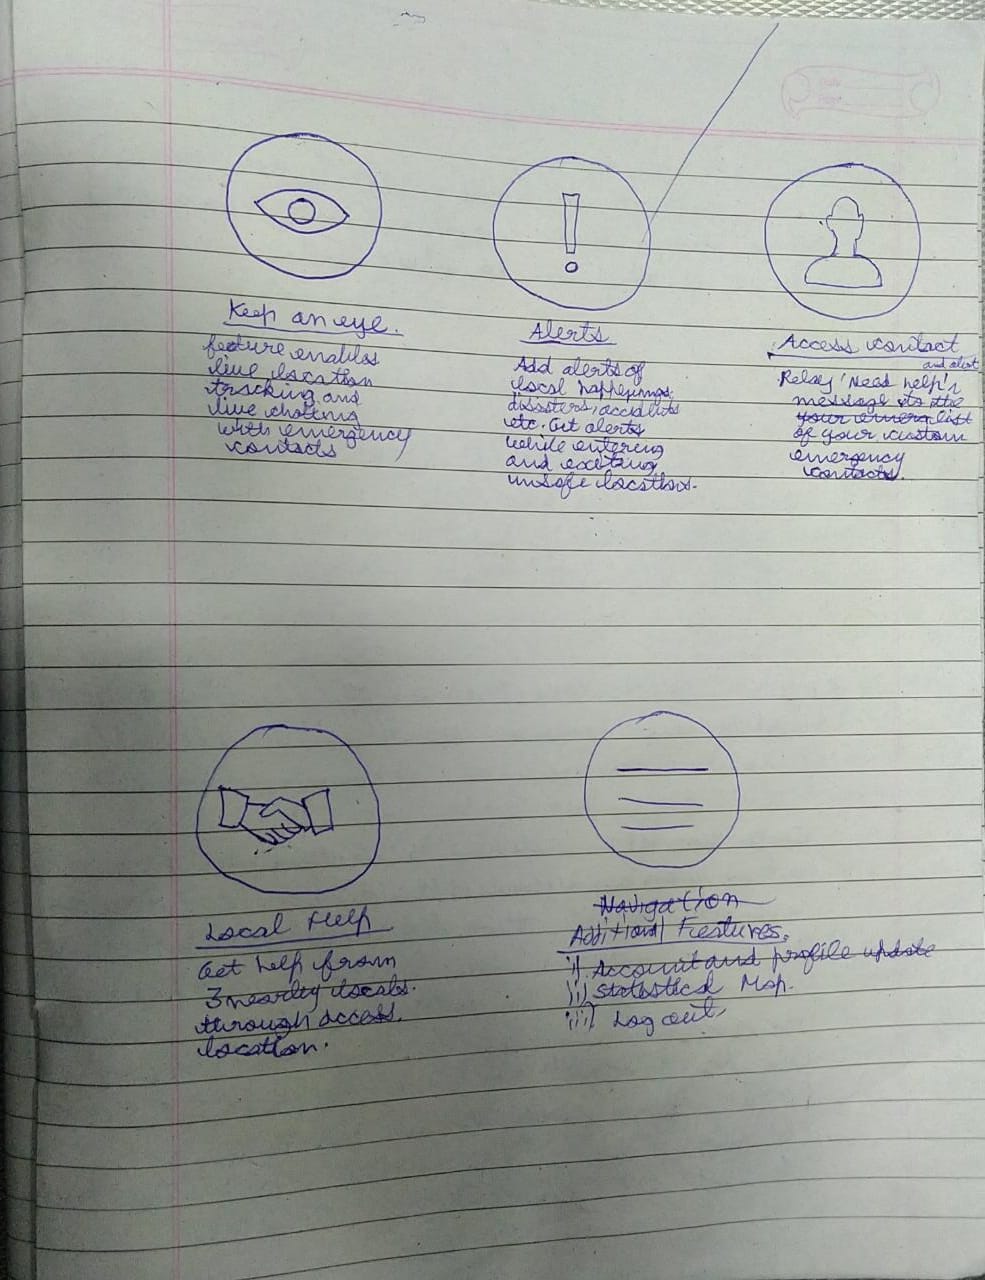 Keep an eye.
feature enables
live location
tracking and
live chating
with emergency
contacts
Alerts
Add alerts of
local happenings,
disasters, accidents
etc. Get alerts
while entering
and exiting
unsafe location.
Access contact
and alert
Relay 'Need help'
message to the
your emerg list
of your custom
emergency
contacts.
Local Help
Get help from
3 nearby locals.
through access
location.
Navigation
Additional Features.
i) Account and profile update
ii) Statistical Map.
iii) Log out